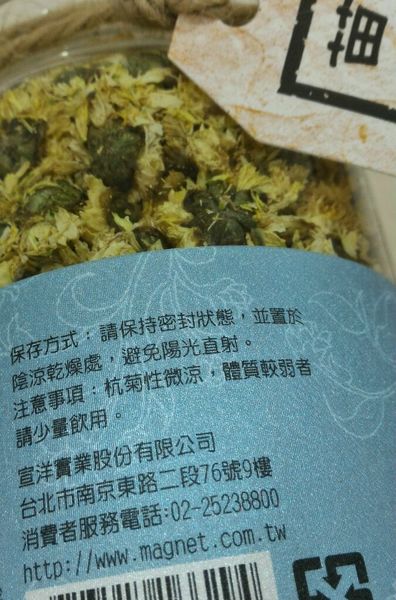 保存方式：請保持密封狀態，並置於
陰涼乾燥處，避免陽光直射。
注意事項：杭菊性微涼，體質較弱者
請少量飲用。
宣洋實業股份有限公司
台北市南京東路二段76號9樓
消費者服務電話:02-25238800
http://www.magnet.com.tw